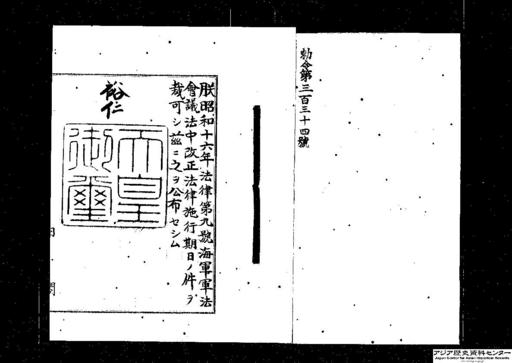 勅令第三百三十四號
朕昭和十六年法律第九號海軍軍法
會議法中改正法律施行期日ノ件ヲ
裁可シ茲ニ之ヲ公布セシム
裕仁
天皇
御璽
内閣
アジア歴史資料センター
Japan Center for Asian Historical Records